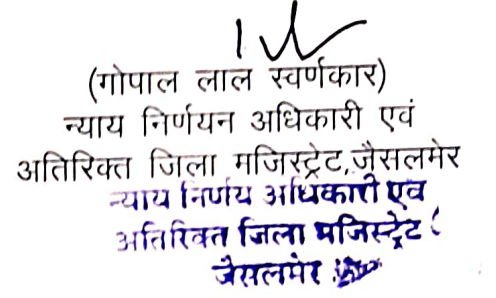 (गोपाल लाल स्वर्णकार)
न्याय निर्णयन अधिकारी एवं
अतिरिक्त जिला मजिस्ट्रेट,जैसलमेर
न्याय निर्णय अधिकारी एवं
अतिरिक्त जिला मजिस्ट्रेट (
जैसलमेर